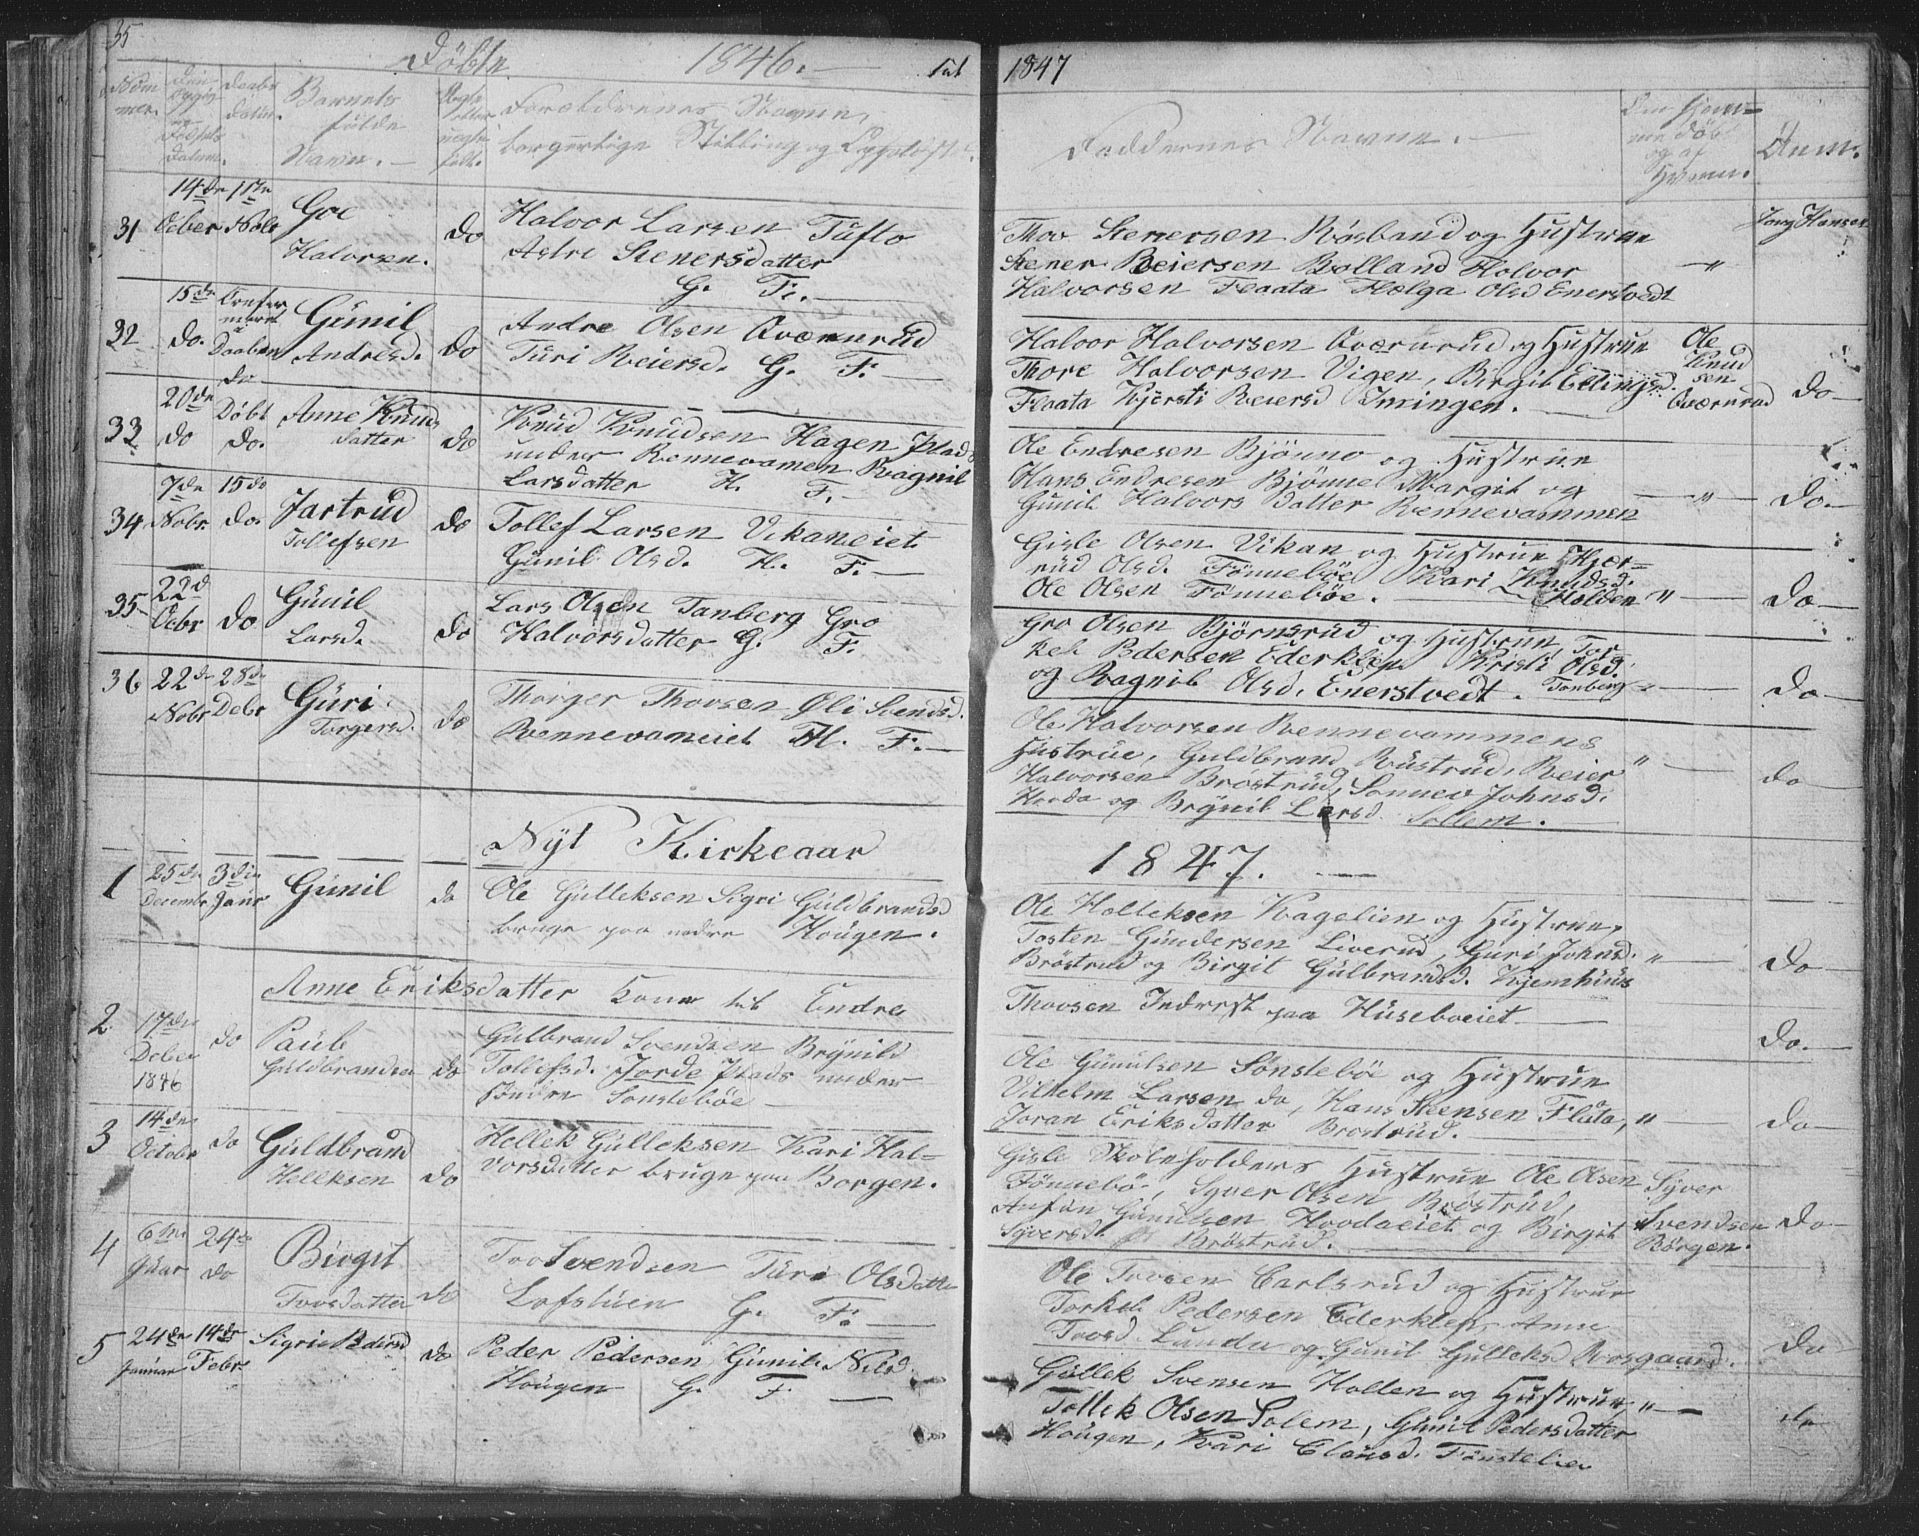 35
Döbte 1846. — 1847
Nom
mer.
Daabs
datum.
Barnets
fulde
Navn. —
Forældrenes Navne,
borgerlige Stilling og Opholdsted.
Faddernes Navne. —
Hvem.
Anm.
31
14de
October
Goe
Halvorsen.
do
Halvor Larsen Tüfto
Astri Stenersdatter
G. F. —
Thov Stenersen Rösband og Hustrue
Stener Reiersen Rolland Halvor
Halvorsen Flaata Helga Olsd Enerstvedt
"
32
15de
do.
Daaben
Günil
Andresd.
do
Andre Olsen Qværnrud
Turi Reiersd. G. F. —
Halvor Halvorsen Qværnrud og Hustrue
Thore Halvorsen Vigen, Birgit Ellingsd.
Flaata Kjersti Reiersd Imingen. —
Ole
Knud
sen
Qværnrud
do —
33
20de
do
Döbt
do.
Anne Knuds
datter
do
Knud Knudsen Hagen Plads
under Rennevamen Ragnil
Larsdatter H. F. —
Ole Endresen Bjönno og Hustrue
Hans Endresen Bjönne Margit og
Gunil Halvors datter Rennevammen
— " —
do. —
34
7de
Nobr.
15de
do.
Jartrud
Tollefsen
do
Tollef Larsen Vikaneiet
Günil Olsd. H. F. —
Gisle Olsen Vikan og Hustrue Kjær-
rud Olsd. Fönneböe Kari Knudsd.
Ole Olsen Fönneböe. — Holden " —
do —
35
22d
Ocbr
do
Günil
Larsd.
do
Lars Olsen Tanberg Gro
Halvorsdatter G. F.
Gro Olsen Björnsrud og Hustrue, Tor
kel Pedersen Ederklep Kristi Olsd.
og Ragnil Olsd. Enerstvedt. Tanberg " —
do —
36
22de
Nobr
28de
Debr
Güri
Torgersd.
do
Thorger Thovsen Öli Svendsd.
Rennevameiet H. F. —
Ole Halvorsen Rennevammens
Hustrue, Guldbrand Rustrud, Reier " —
Halvorsen Bröstrud, Sonnev Johnsd.
Horda og Brynil Larsd Sollem.
do
Nyt Kirkeaar
1847. —
1
25de
Decembr
3die
Janr
Günil
do
Ole Gülleksen Sigri Guldbrandsd
bruge paa nedre Hougen.
Ole Holleksen Kagelien og Hustrue,
Tosten Gundersen Liverud, Guri Johnsd. " —
Bröstrud og Birgit Gulbrandsd. Kjemhuus
do —
Anne Eriksdatter Kone til Endre
Thovsen Indrest paa Hüseboeiet —
do. —
2
17de
Dober
1846
do
Paul
Guldbrandsen
do
Gulbrand Svendsen Brynild
Tollefsd. Jorde Plads under
Söndre Sonsteböe —
Ole Gunulsen Sönsteböe og Hustrue
Vilhelm Larsen do, Hans Steensen Flata, " —
Joran Eriksdatter Brostrud. —
do —
3
14de
Octobr
do
Guldbrand
Helleksen
do
Hellek Gulleksen Kari Hal-
vorsdatter bruge paa Borgen.
Gisle Skoleholders Hustrue Ole Olsen
Fönnebö, Syver Olsen Bröstrud,
Anfün Gunulsen Hovdaeiet og Birgit
Syversd. Bröstrud. —
Syver
Svendsen
Börgen.
do —
4
6te
Jüar
24de
do
Birgit
Tovsdatter
do
Tov Svendsen Turi Olsdatter
Lofstuen G. F. —
Ole Tovsen Carlsrud og Hustrue
Torkel Pedersen Ederklep, Anne
Tovsd. Lunde og Gunil Gulleksd. Rosgaard.
do —
5
24de
Januar
14de
Febr.
Sigri Pedersd
do
Peder Pedersen Günil Nilsd.
Hougen G. F. —
Güllek Svensen Hollen og Hustrue " —
Tollek Olsen Solem, Günil Pedersdatter
Hougen, Kari Clausd. Fönstelien
do